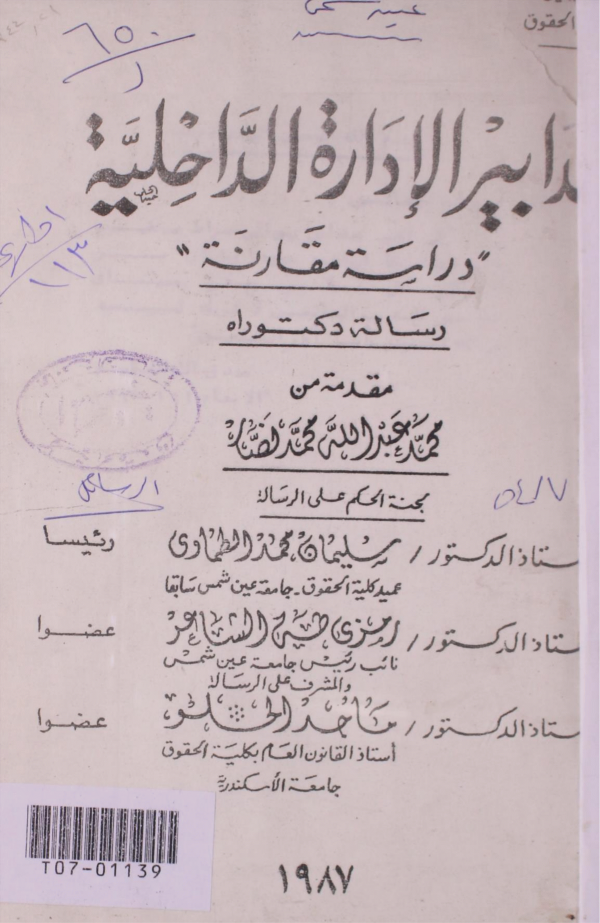 عين شمس
الحقوق
٦٥٠
ر
دابير الإدارة الداخلية
"دراسة مقارنة"
ادارى
١١٣
رسالة دكتوراه
مقدمة من
محمد عبد الله محمد نصار
الرسائل
٥٤٨٧
لجنة الحكم على الرسالة
ستاذ الدكتور / سليمان محمد الطماوى رئيسا
عميد كلية الحقوق - جامعة عين شمس سابقا
ستاذ الدكتور / رمزى طه الشاعر عضوا
نائب رئيس جامعة عين شمس
والمشرف على الرسالة
ستاذ الدكتور / ماجد الحلو عضوا
أستاذ القانون العام بكلية الحقوق
جامعة الأسكندرية
T07-01139
١٩٨٧